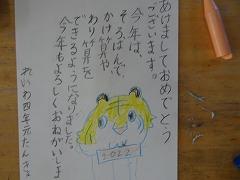 あけましておめでとう
ございます。
今年は、
そろばんで、
かけ算や
わり算を
できるようになりました。
今年もよろしくおねがいしま
れいわ四年元たん
2022